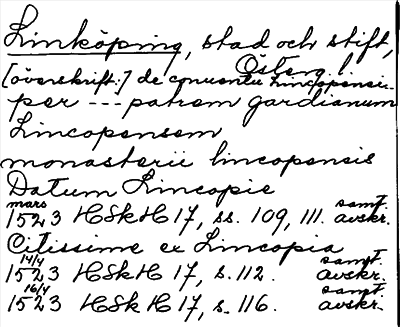 Linköping, stad och stift,
Österg.
[överskrift:] de conventu Lincopensi
per --- patrem gardianum
Lincopensem
monasterii lincopensis
Datum Lincopie
mars samt.
1523 HSkH 17, ss. 109, 111. avskr.
Citissime ex Lincopia
14/4 samt.
1523 HSkH 17, s. 112. avskr.
16/4 samt.
1523 HSkH 17, s. 116. avskr.